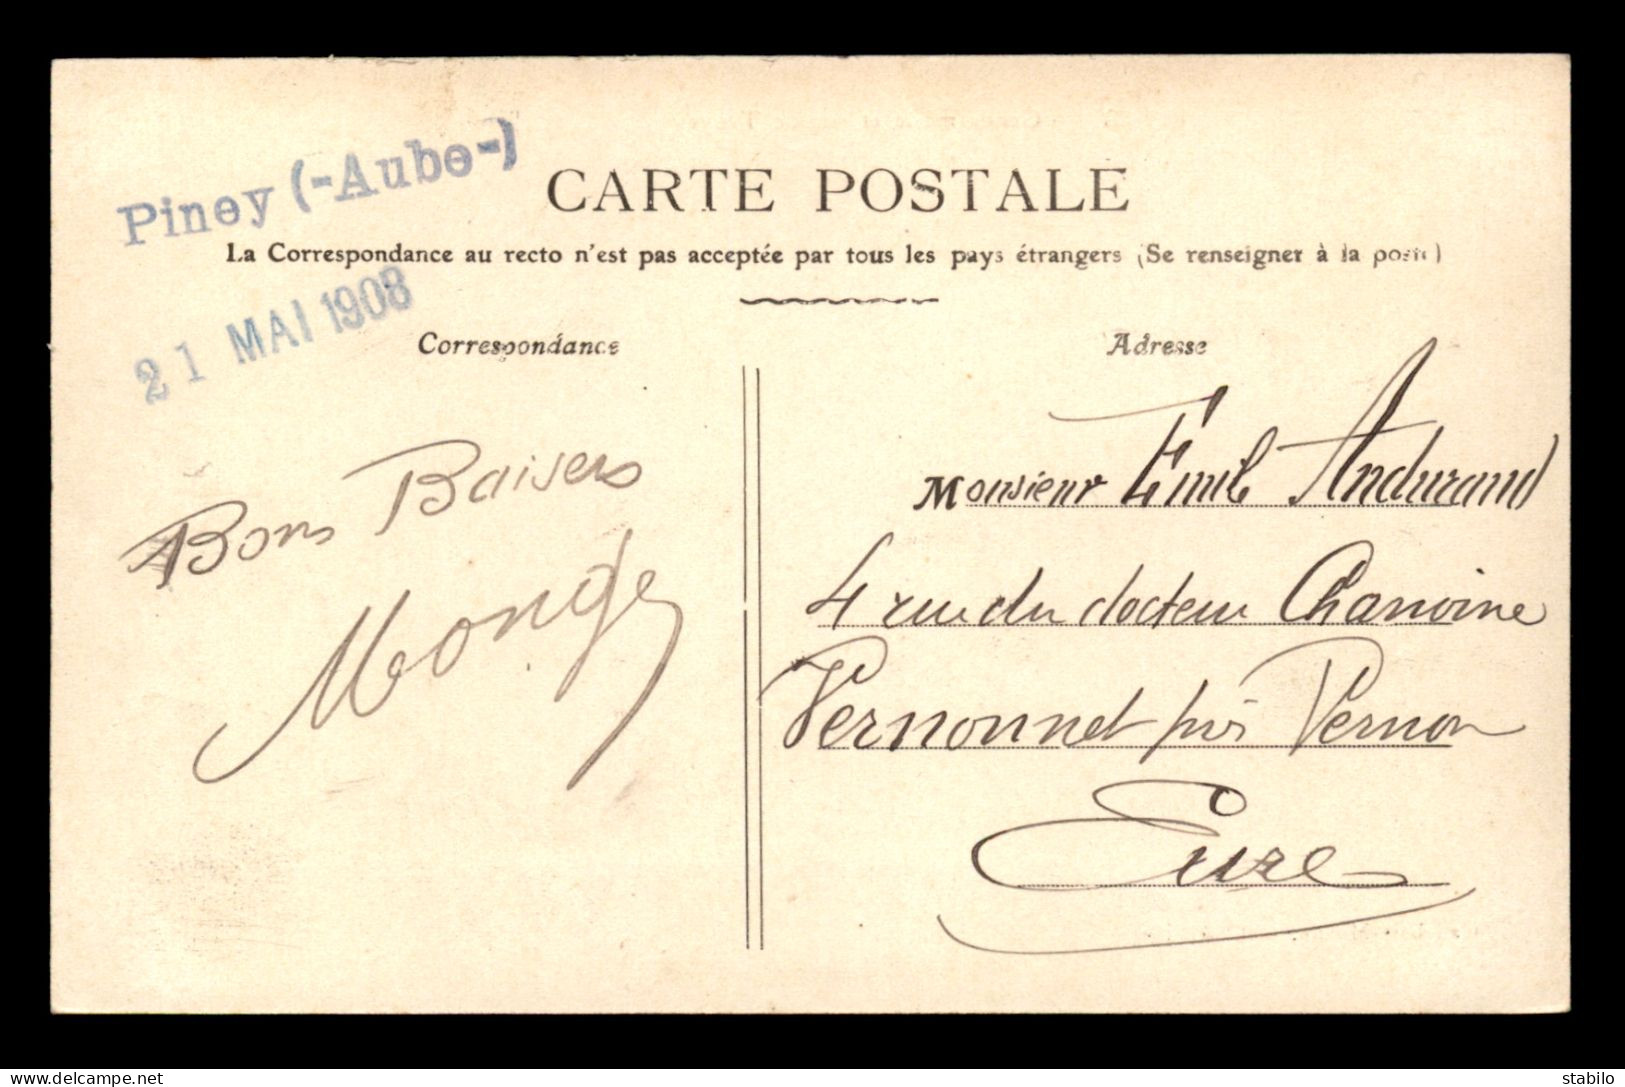 Piney (-Aube-)
21 MAI 1908
CARTE POSTALE
La Correspondance au recto n'est pas acceptée par tous les pays étrangers (Se renseigner à la poste)
Correspondance
Adresse
Bons Baisers
Monge
Monsieur Emile Andurand
4 rue du docteur Chanoine
Vernonnet près Vernon
Eure
stabilo